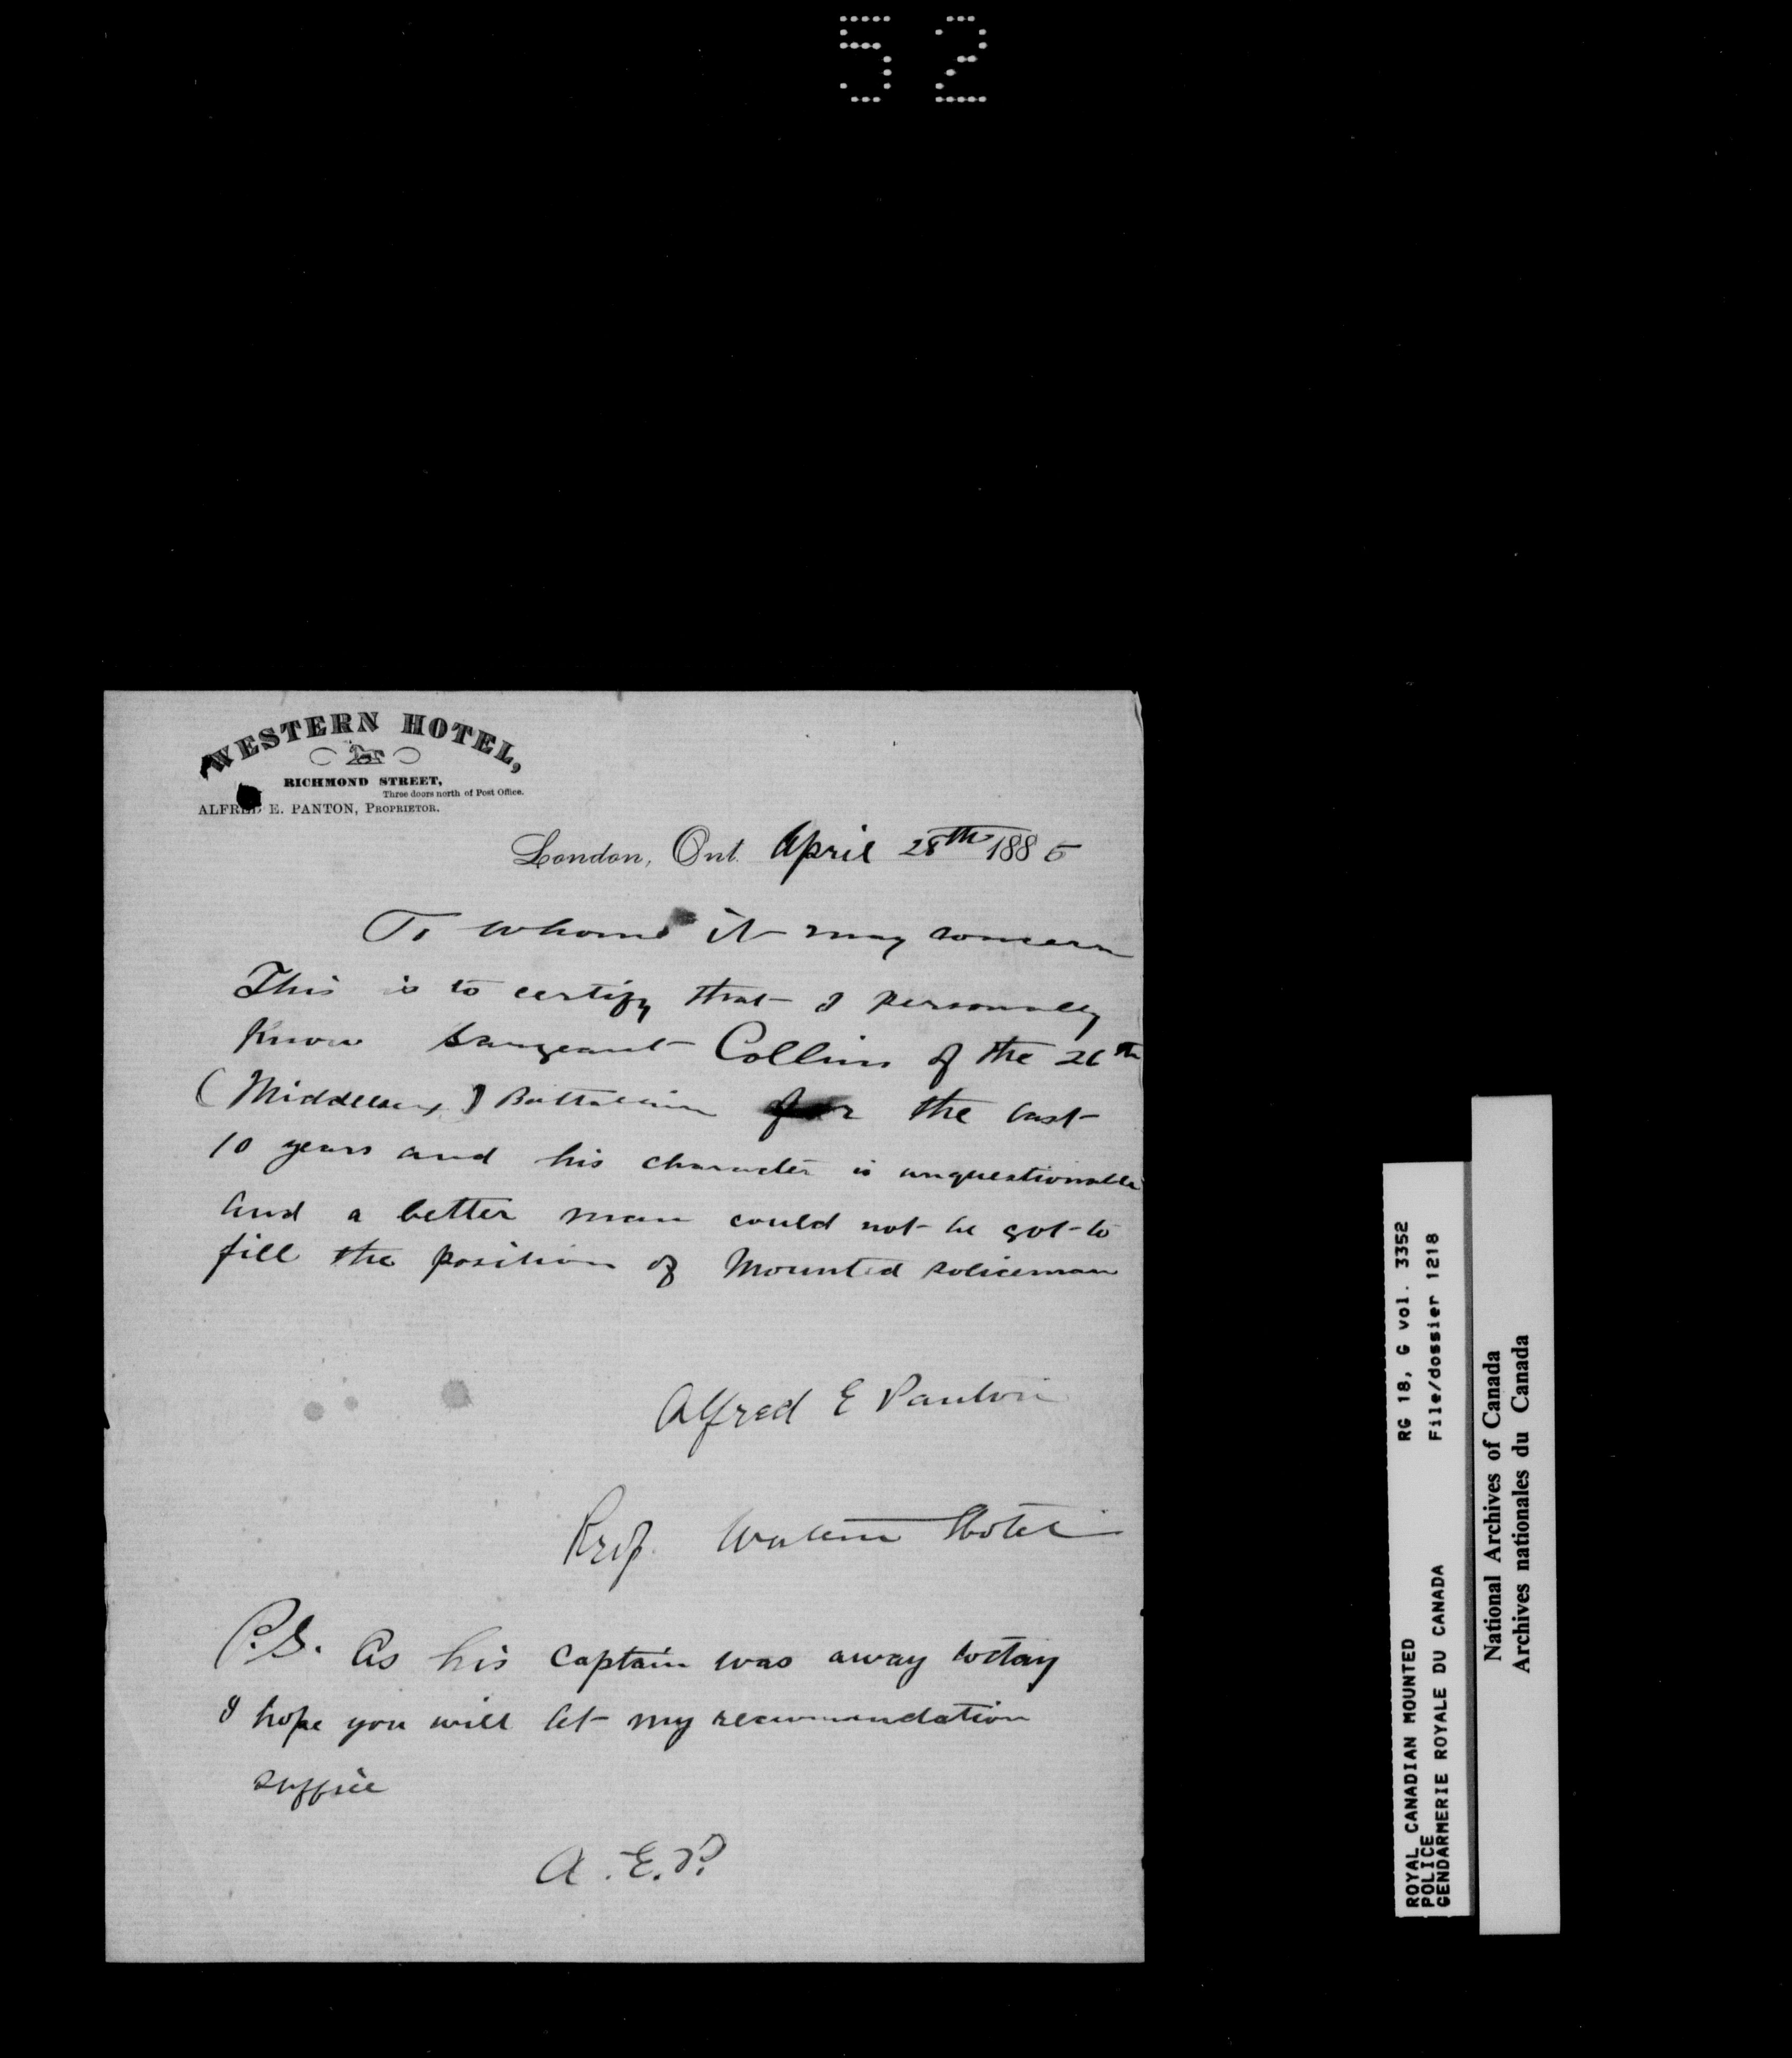 52
WESTERN HOTEL,
RICHMOND STREET,
Three doors north of Post Office.
ALFRED E. PANTON, PROPRIETOR.
London, Ont. April 28th 1885
To whome it may concern
This is to certify that I personally
know Sargeant Collins of the 26th
(Middlesex) Battalion for the last
10 years and his character is unquestionable
and a better man could not be got to
fill the position of Mounted policeman
Alfred E Panton
Prop. Western Hotel
P.S. As his Captain was away today
I hope you will let my recommendation
suffice
A.E.P.
ROYAL CANADIAN MOUNTED
POLICE
GENDARMERIE ROYALE DU CANADA
RG 18, G vol. 3352
File/dossier 1218
National Archives of Canada
Archives nationales du Canada